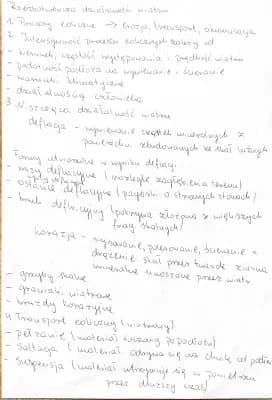 Rzeźbotwórcza działalność wiatru
1. Procesy eoliczne → erozja, transport, akumulacja
2. Intensywność procesów eolicznych zależy od
- kierunek, częstość występowania i prędkość wiatru
- podatność podłoża na wywiewanie, ścieranie
- warunki klimatyczne
- działalnością człowieka
3. Niszcząca działalność wiatru
deflacja - wywiewanie cząstek mineralnych z
powierzchni zbudowanych ze skał luźnych
Formy utworzone w wyniku deflacji
- misy deflacyjne (rozległe zagłębienia terenu)
- ostańce deflacyjne (pagórki o stromych stokach)
- bruk deflacyjny (pokrywa złożona z większych
frag. skalnych)
korazja - rysowanie, polerowanie, ścieranie i
drążenie skał przez twarde ziarna
mineralne unoszone przez wiatr
- grzyby skalne
- graniaki wiatrowe
- bruzdy korazyjne
4 Transport eoliczny (wiatrowy)
- pełzanie (materiał toczony po podłożu)
- saltacja (materiał odrywa się na chwilę od podłoża
- suspensja (materiał utrzymuje się w powietrzu
przez dłuższy czas)